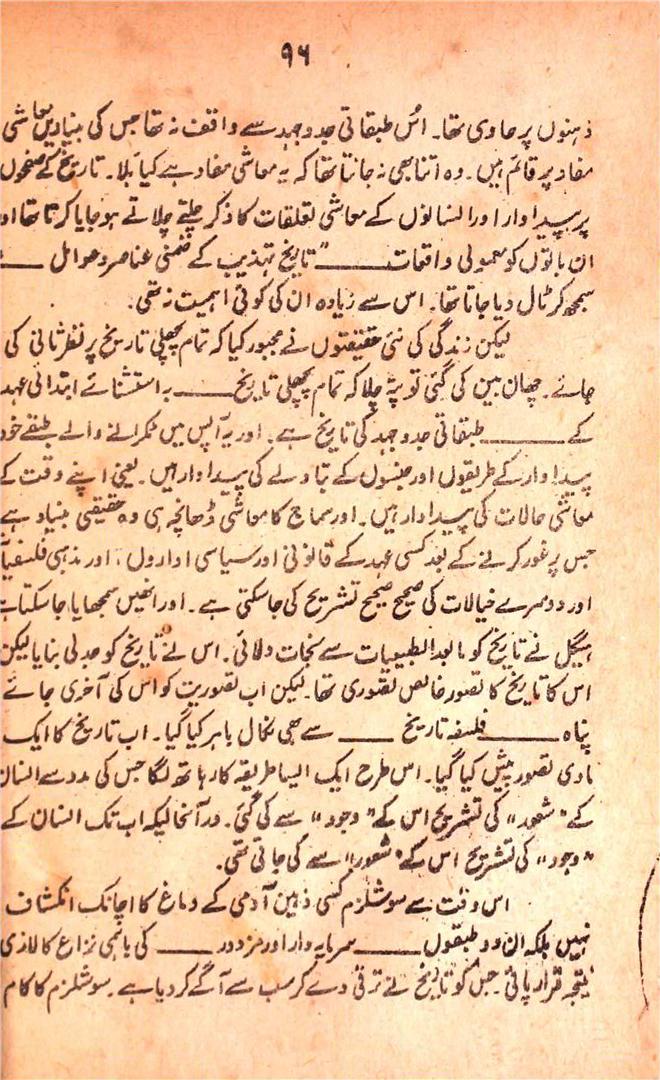 ۹۶
ذہنوں پر حاوی تھا۔ اُس طبقاتی جدوجہد سے واقف نہ تھا جس کی بنیادیں معاشی
مفاد پر قائم ہیں۔ وہ اتنا بھی نہ جانتا تھا کہ یہ معاشی مفاد ہے کیا بَلا۔ تاریخ کے صفحوں
پر پیداوار اور انسانوں کے معاشی تعلقات کا ذکر چلتے چلاتے ہو جایا کرتا تھا اور
ان باتوں کو معمولی واقعات ــــــ "تاریخ تہذیب کے ضمنی عناصر و عوامل ــــ
سمجھ کر ٹال دیا جاتا تھا۔ اس سے زیادہ ان کی کوئی اہمیت نہ تھی۔
لیکن زندگی کی نئی حقیقتوں نے مجبور کیا کہ تمام پچھلی تاریخ پر نظر ثانی کی
جائے۔ چھان بین کی گئی تو پتہ چلا کہ تمام پچھلی تاریخ ــــــ بہ استثنائے ابتدائی عہد
کے ــــــ طبقاتی جدوجہد کی تاریخ ہے۔ اور یہ آپس میں ٹکرانے والے طبقے خود
پیداوار کے طریقوں اور جنسوں کے تبادلے کی پیداوار ہیں۔ یعنی اپنے وقت کے
معاشی حالات کی پیداوار ہیں۔ اور سماج کا معاشی ڈھانچہ ہی وہ حقیقی بنیاد ہے
جس پر غور کرنے کے بعد کسی عہد کے قانونی اور سیاسی اداروں، اور مذہبی فلسفیانہ
اور دوسرے خیالات کی صحیح صحیح تشریح کی جا سکتی ہے۔ اور انھیں سمجھایا جا سکتا ہے
ہیگل نے تاریخ کو مابعد الطبیعیات سے نجات دلائی۔ اس نے تاریخ کو جدلی بنایا لیکن
اس کا تاریخ کا تصور خالص تصوری تھا۔ لیکن اب تصوریت کو اس کی آخری جائے
پناہ ــــــ فلسفہ تاریخ ــــــ سے بھی نکال باہر کیا گیا۔ اب تاریخ کا ایک
مادی تصور پیش کیا گیا۔ اس طرح ایک ایسا طریقہ کار ہاتھ لگا جس کی مدد سے انسان
کے "شعور" کی تشریح اس کے "وجود" سے کی گئی۔ درآنحالیکہ اب تک انسان کے
"وجود" کی تشریح اس کے "شعور" سے کی جاتی تھی۔
اس وقت سے سوشلزم کسی ذہین آدمی کے دماغ کا اچانک انکشاف
نہیں بلکہ ان دو طبقوں ــــــ سرمایہ دار اور مزدور ــــــ کی باہمی نزاع کا لازمی
نتیجہ قرار پائی۔ جس کو تاریخ نے ترقی دے کر سب سے آگے کر دیا ہے۔ سوشلزم کا کام